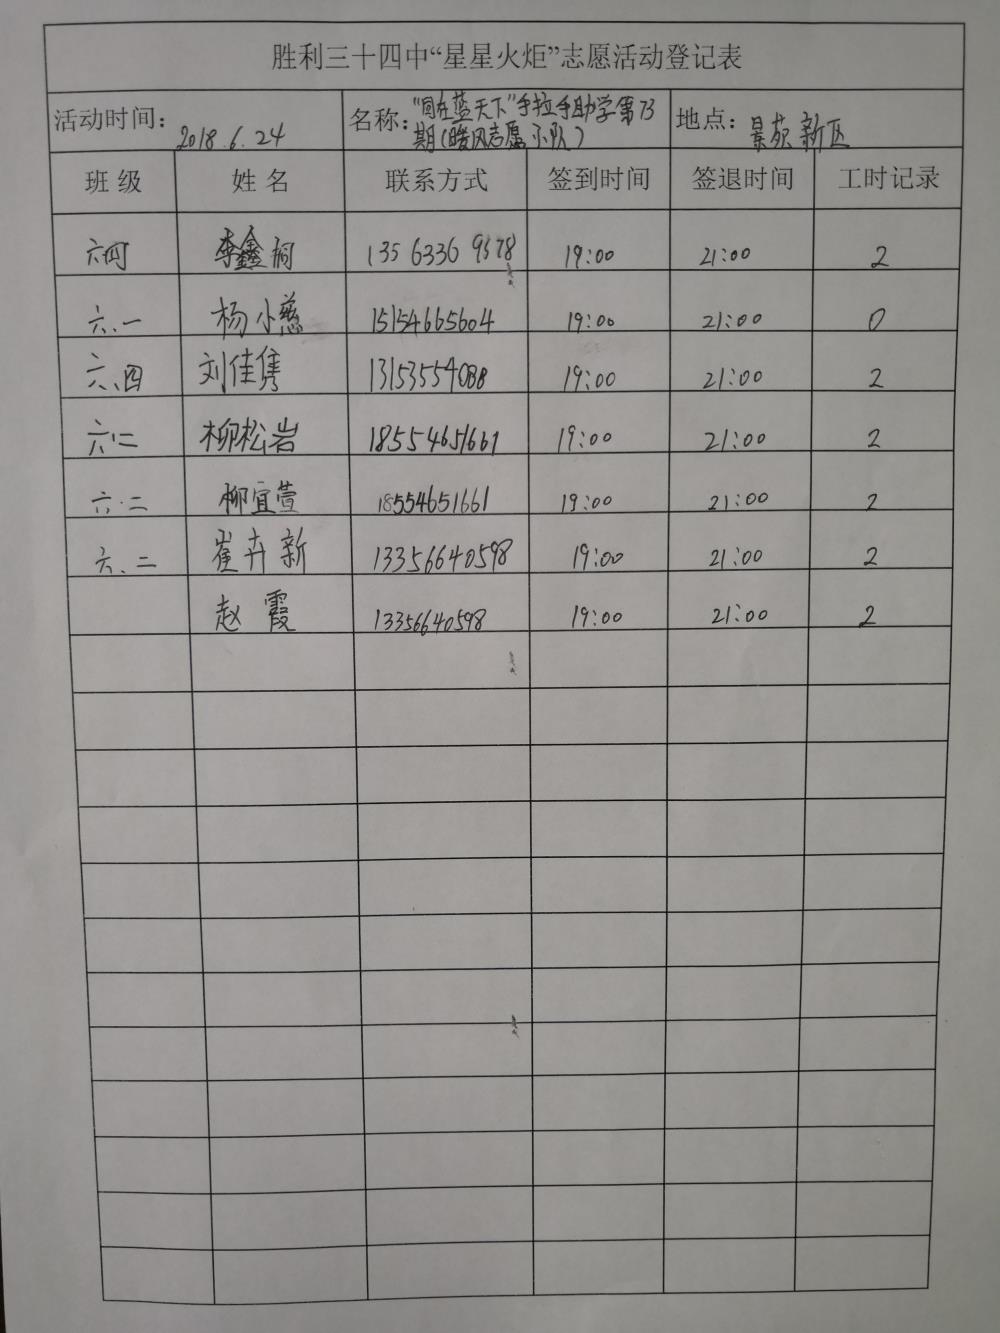 胜利三十四中“星星火炬”志愿活动登记表
活动时间：2018.6.24 名称：“同在蓝天下”手拉手助学第73期（暖风志愿小队） 地点：景苑新区
班级 姓名 联系方式 签到时间 签退时间 工时记录
六四 李鑫桐 135 6336 9578 19:00 21:00 2
六、一 杨小慈 15154665604 19:00 21:00 0
六、四 刘佳隽 13153554088 19:00 21:00 2
六.二 柳松岩 18554651661 19:00 21:00 2
六.二 柳宜萱 18554651661 19:00 21:00 2
六、二 崔卉新 13356640598 19:00 21:00 2
赵霞 13356640598 19:00 21:00 2